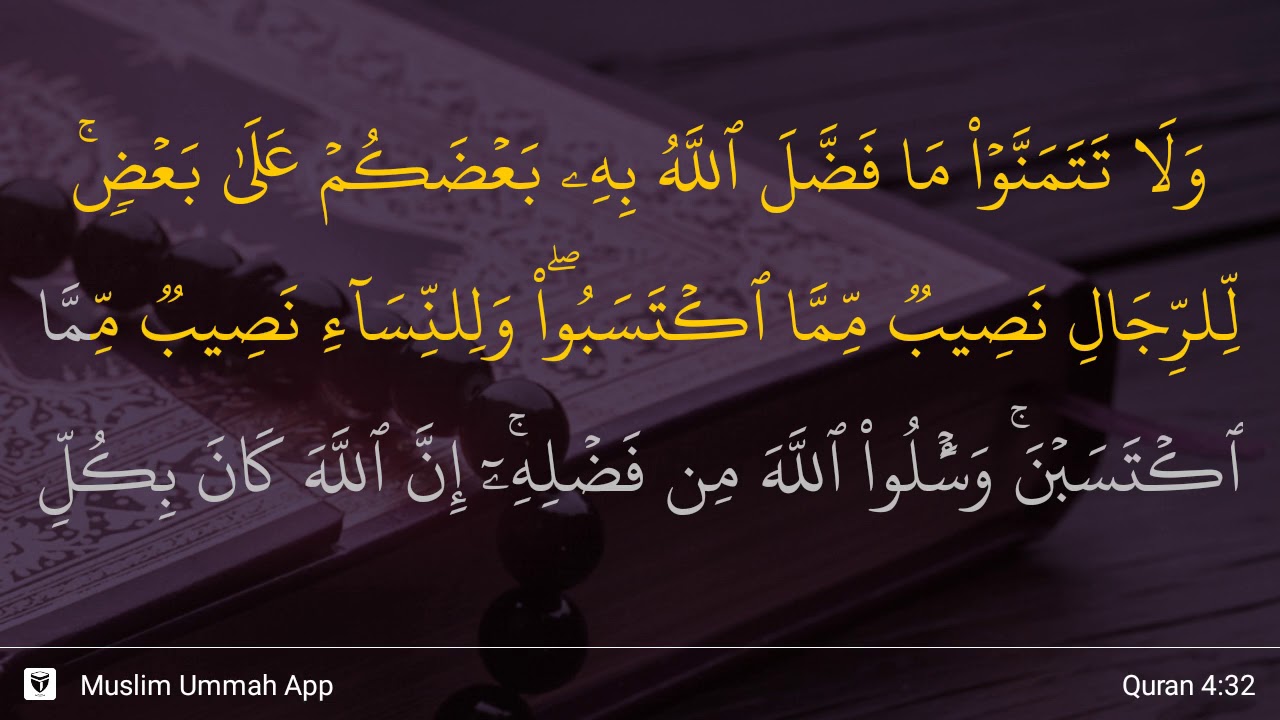 وَلَا تَتَمَنَّوْا۟ مَا فَضَّلَ ٱللَّهُ بِهِۦ بَعْضَكُمْ عَلَىٰ بَعْضٍۢ ۚ
لِّلرِّجَالِ نَصِيبٌۭ مِّمَّا ٱكْتَسَبُوا۟ ۖ وَلِلنِّسَآءِ نَصِيبٌۭ مِّمَّا
ٱكْتَسَبْنَ ۚ وَسْـَٔلُوا۟ ٱللَّهَ مِن فَضْلِهِۦٓ ۚ إِنَّ ٱللَّهَ كَانَ بِكُلِّ
Muslim Ummah App
Quran 4:32